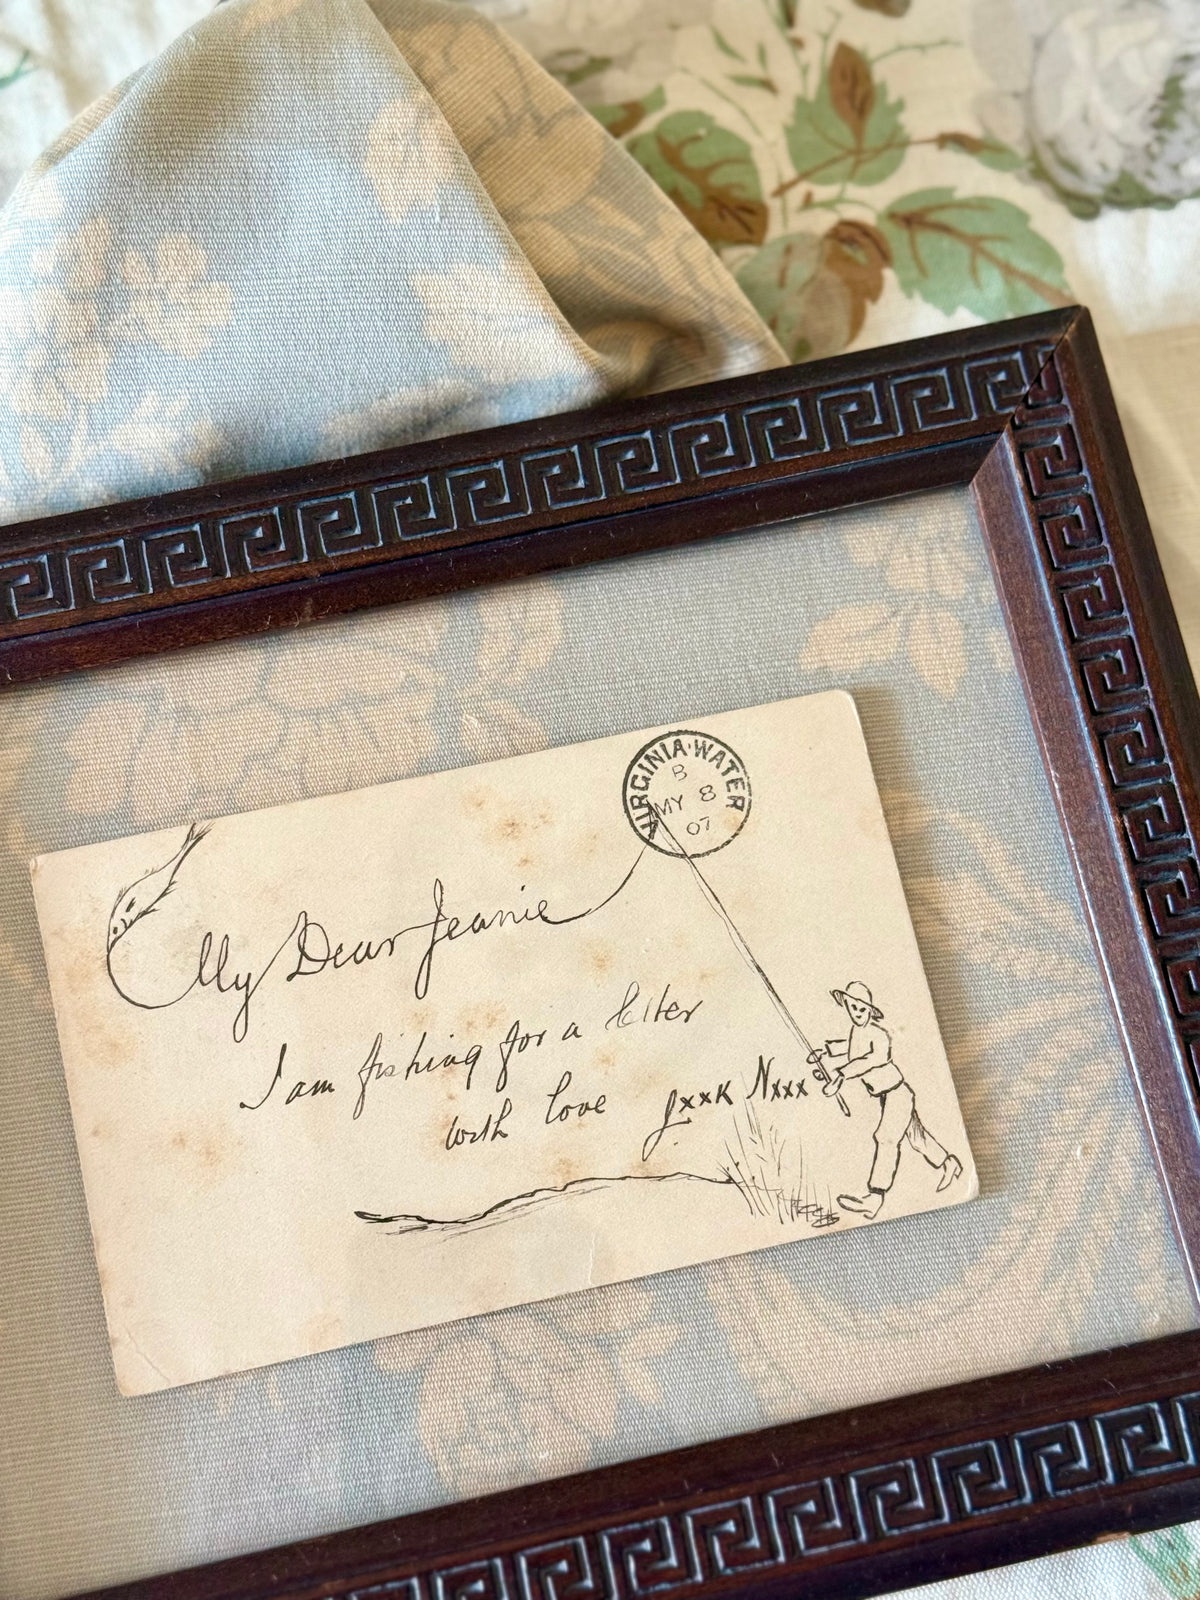 VIRGINIA·WATER
B
MY 8
07
My Dear Jeanie
I am fishing for a letter
with love JxxK Nxxx